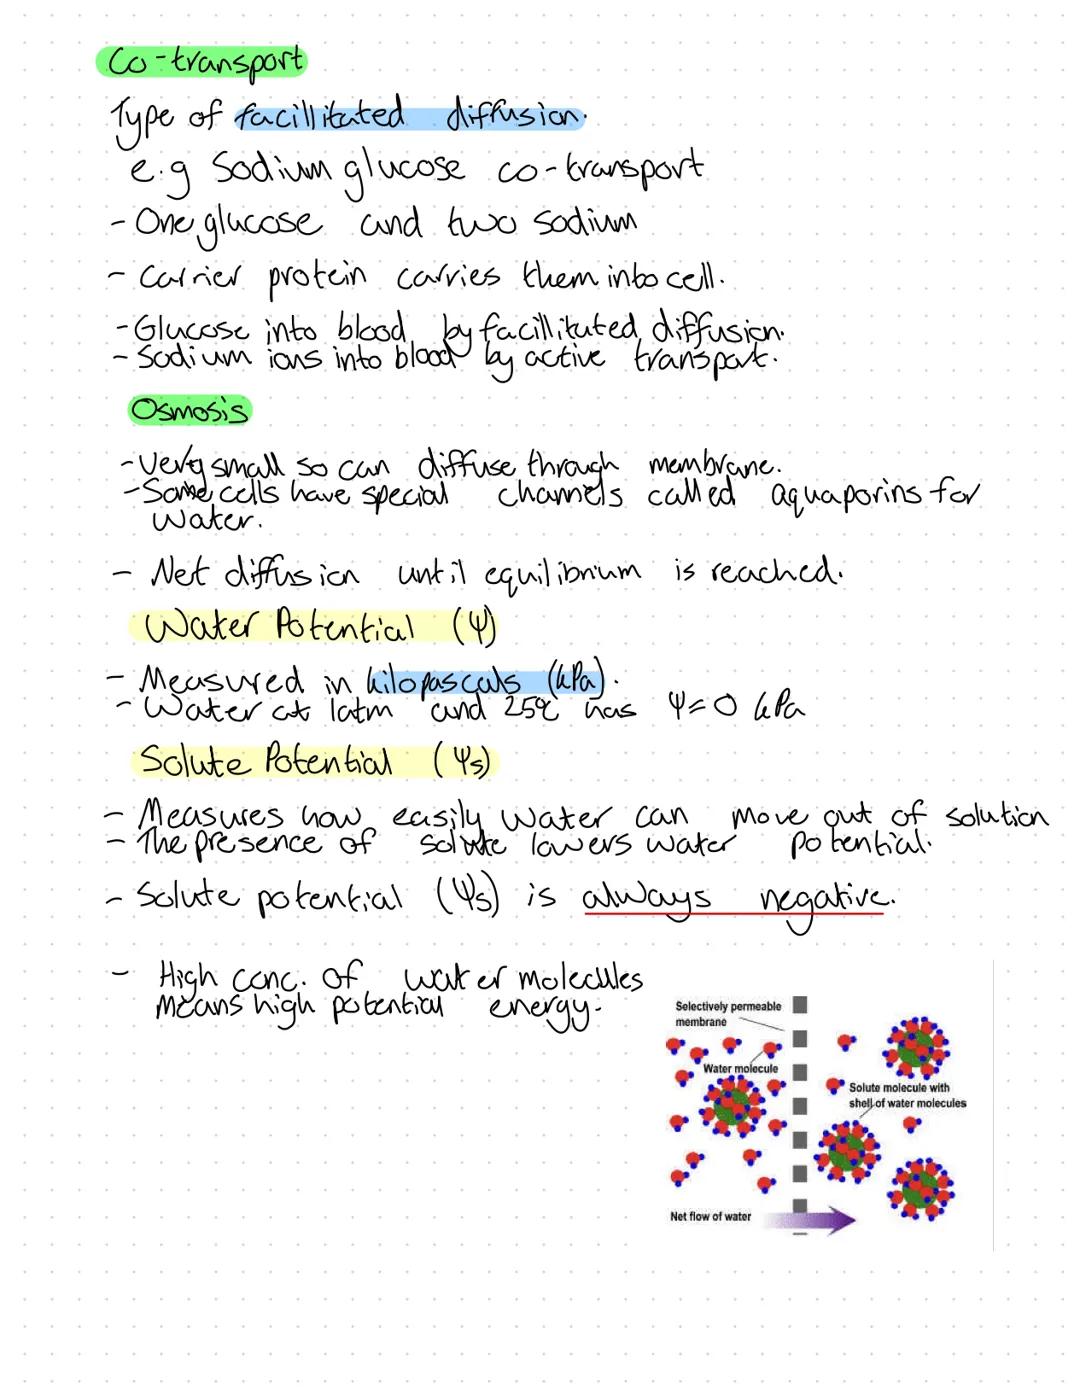 Co-transport
Type of facillitated diffusion.
e.g Sodium glucose co-transport
- One glucose and two sodium
- Carrier protein carries them into cell.
- Glucose into blood by facillitated diffusion.
- Sodium ions into blood by active transport.
Osmosis
- Very small so can diffuse through membrane.
- Some cells have special channels called aquaporins for
water.
- Net diffusion until equilibrium is reached.
Water Potential (Ψ)
- Measured in kilopascals (kPa).
- Water at 1atm and 25°C has Ψ=0 kPa
Solute Potential (Ψs)
- Measures how easily water can move out of solution
- The presence of solute lowers water potential.
- Solute potential (Ψs) is always negative.
- High conc. of water molecules
means high potential energy.
Selectively permeable
membrane
Water molecule
Solute molecule with
shell of water molecules
Net flow of water